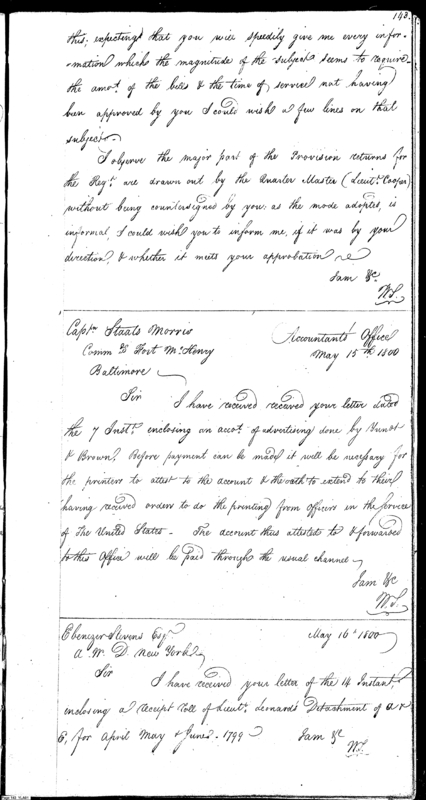 143.
this; expecting that you will speedily give me every infor-
-mation which the magnitude of the subject seems to require-
the amot. of the bills & the time of service not having
been approved by you I could wish a few lines on that
subject.
I observe the major part of the Provision returns for
the Regt. are drawn out by the Quarter Master (Lieut. Cooper)
without being countersigned by you, as the mode adopted, is
informal, I could wish you to inform me, if it was by your
direction, & whether it meets your approbation
I am &c.
W.S.
Captn. Staats Morris
Accountants Office
Comm'g Fort McHenry
May 15th 1800
Baltimore
Sir
I have received received your letter dated
the 7 Inst. enclosing an accot. of advertising done by
& Brown. Before payment can be made it will be necessary for
the printers to attest to the account & the oath to extend to their
having received orders to do the printing from Officers in the service
of The United States - The account thus attested to & forwarded
to this Office will be paid through the usual channel
I am &c
W.S.
Ebenezer Stevens Esqr.
May 16th 1800
A. W. D. New York
Sir
I have received your letter of the 14 Instant,
enclosing a receipt roll of Lieut. Leonards Detachment of A &
E, for April May & June - 1799
I am &c
W.S.